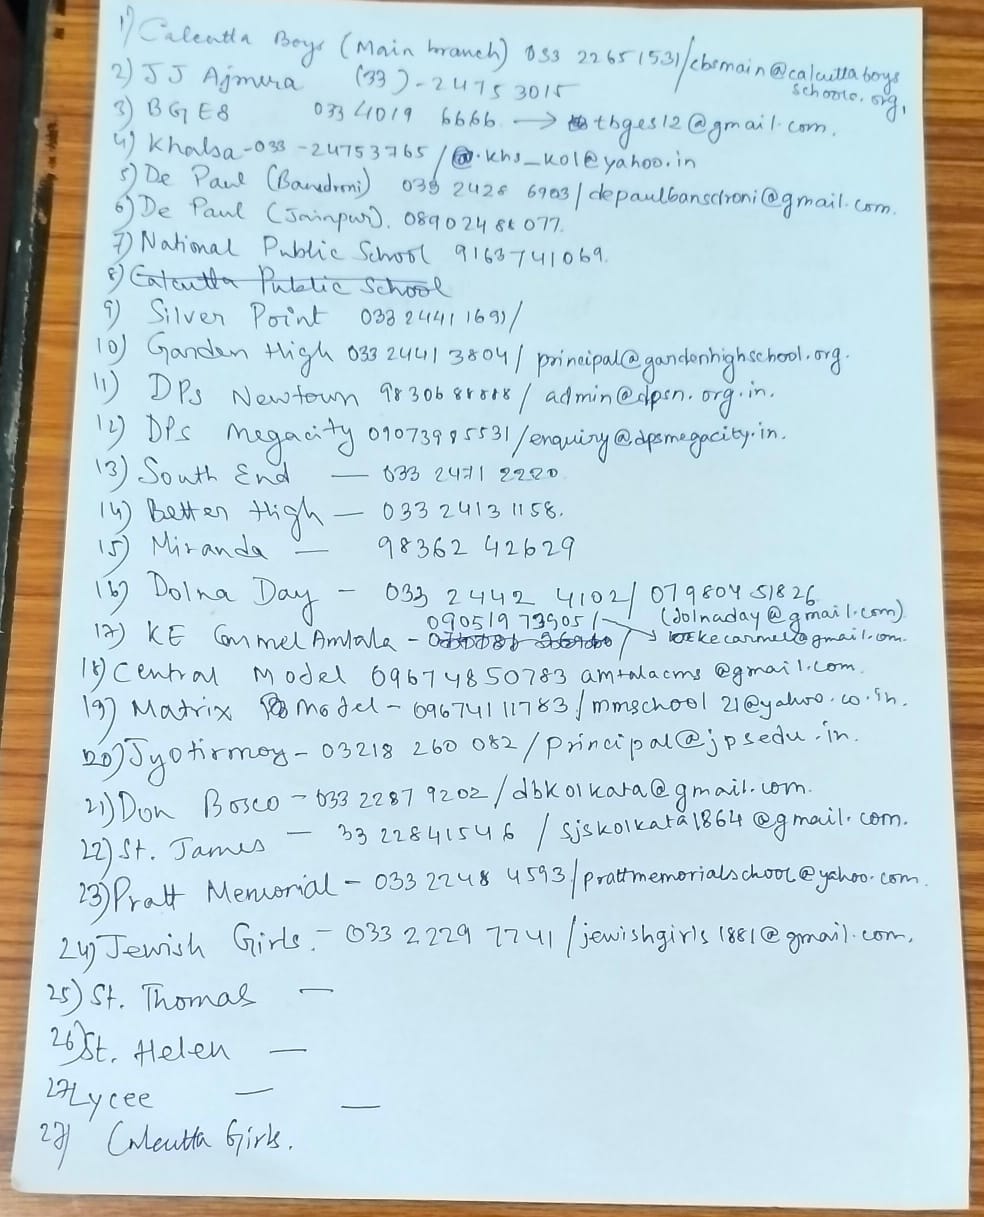 1) Calcutta Boys (Main branch) 033 2265 1531/cbsmain@calcuttaboys
schools.org,
2) JJ Ajmera (33)-2475 3015
3) BGES 033 4019 6666 → tbges12@gmail.com.
4) Khalsa-033-24753765/ khs_kol@yahoo.in
5) De Paul (Bansdroni) 033 2428 6903/depaulbansdroni@gmail.com.
6) De Paul (Jainpur).
7) National Public School 9163741069.
8) Calcutta Public School
9) Silver Point 033 2441
10) Garden High 033 2441 3804/ principal@gardenhighschool.org.
11) DPS Newtown / admin@dpsn.org.in.
12) DPS Megacity 09073985531/enquiry@dpsmegacity.in.
13) South End — 033 2471 2220
14) Better High — 033 2413 1158.
15) Miranda — 98362 42629
16) Dolna Day - 033 2442 4102/ 079804 51826
(dolnaday@gmail.com)
17) KE Carmel Amtala - 090519 73905/ → kecarmel@gmail.com.
18) Central Model 09674850783 amtalacms@gmail.com.
19) Matrix Model - 09674111783/mmschool21@yahoo.co.in.
20) Jyotirmoy - 03218 260 082/principal@jpsedu.in.
21) Don Bosco - 033 2287 9202/dbkolkata@gmail.com.
22) St. James — 33 22841546 / sjskolkata1864@gmail.com.
23) Pratt Memorial - 033 2248 4593/prattmemorialschool@yahoo.com.
24) Jewish Girls. - 033 2229 7741/jewishgirls1881@gmail.com,
25) St. Thomas —
26) St. Helen —
27) Lycee — —
27) Calcutta Girls.